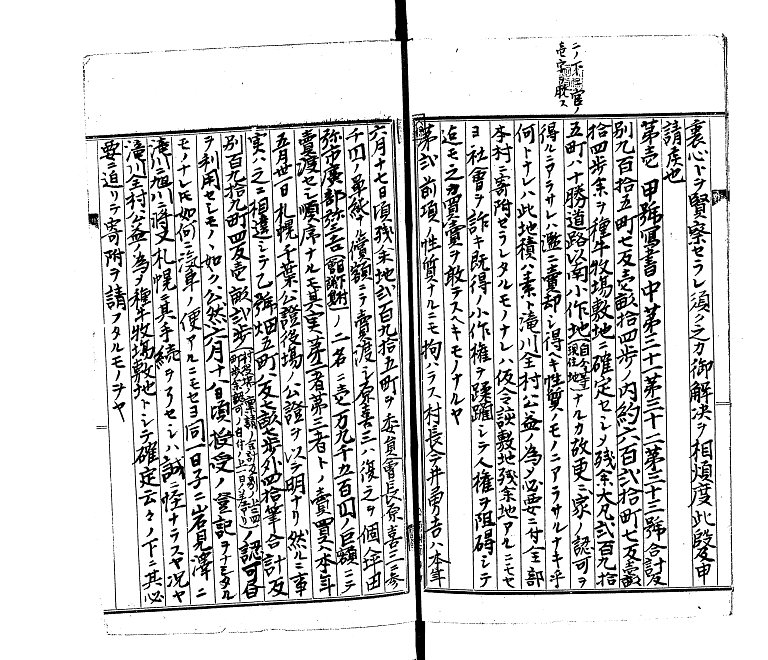 ニノ下 官ノ
壱字ヲ脱ス
裏心トヲ賢察セラレ須ク之カ御解決ヲ相煩度此段及申
請候也
第壱 甲號寫書中第三十一第三十二第三十三號合計反
別九百拾五町七反壱畝拾四歩ノ内約六百弐拾町七反壱畝
拾四歩余ヲ種牛牧場敷地ニ確定セシメ残余大凡弐百九拾
五町ハ十勝道路以南小作地ナルカ故更ニ家ノ認可ヲ
得ルニアラサレハ濫ニ賣却シ得ヘキ性質ノモノニアラサルナキ乎
何トナレハ此地積ハ素ト滝川全村公益ノ為メ必要ニ付全部
本村ニ寄附セラレタルモノナレハ仮令該敷地残余地アルニモセ
ヨ社會ヲ詐キ既得ノ小作権ヲ蹂躙シテ人権ヲ阻碍シテ
迄モ之カ買賣ヲ敢テスヘキモノナルヤ
第弐 前項ノ性質ナルニモ拘ハラス村長今井勇吉ハ本年
六月十七日頃残余地弐百九拾五町ヲ委員會長原喜三ニ参
千円ノ単純ナル價額ニテ賣渡シ原喜三ハ復之ヲ個人田
弥市廣部弥三吉ノ二名ニ壱万九千五百円ノ巨額ニテ
賣渡セシ順序ナルモ其実第二者第三者トノ賣買ハ本年
五月卅一日札幌千葉公證役場ノ公證ヲ以テ明ナリ然ルニ事
実ハ之ニ相違シテ乙號畑五町二反七畝七歩外四拾筆合計反
別百九拾九町四反壱畝弐歩ノ認可書
ヲ利用セシモノヽ如ク公然六月十八日頃授受ノ登記ヲナシタル
モノナレト如何ニ汽車ノ便アルニモセヨ同一日子ニ岩見澤ニ
滝川ニ旭川ニ將又札幌ニ其手続ヲ了セシハ誠ニ怪ナラスヤ況ヤ
滝川全村公益ノ為メ種牛牧場敷地トシテ確定云々ノ下ニ其必
要ニ迫リテ寄附ヲ請フタルモノヲヤ